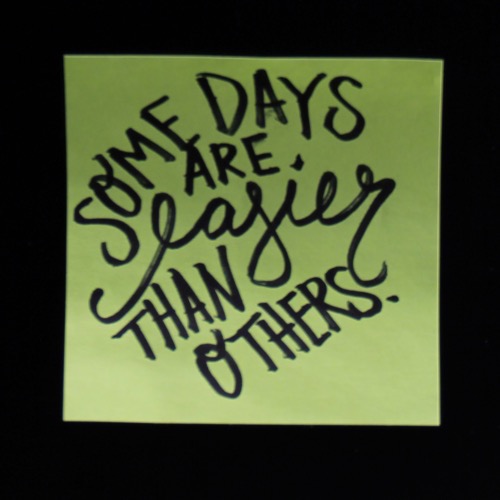 SOME DAYS
ARE
easier
THAN
OTHERS.